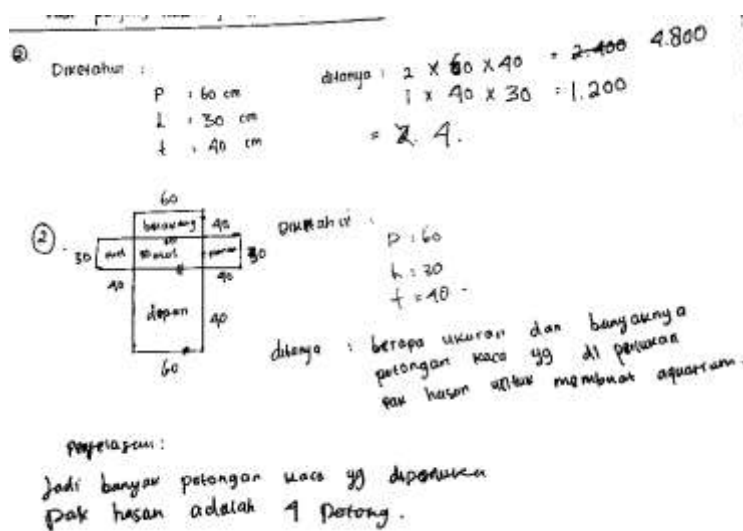 ②. Diketahui :
P : 60 cm
L : 30 cm
t : 40 cm
ditanya : 2 x 60 x 40 = 2.400 4.800
1 x 40 x 30 = 1.200
= 4.
②.
60
belakang 40
30 30
40 40
depan 40
60
Diketahui :
P : 60
L : 30
t = 40 .
ditanya : berapa ukuran dan banyaknya
potongan kaca yg di perlukan
pak hasan untuk membuat aquarium.
Penyelesaian :
Jadi banyak potongan kaca yg diperlukan
pak hasan adalah 4 potong.